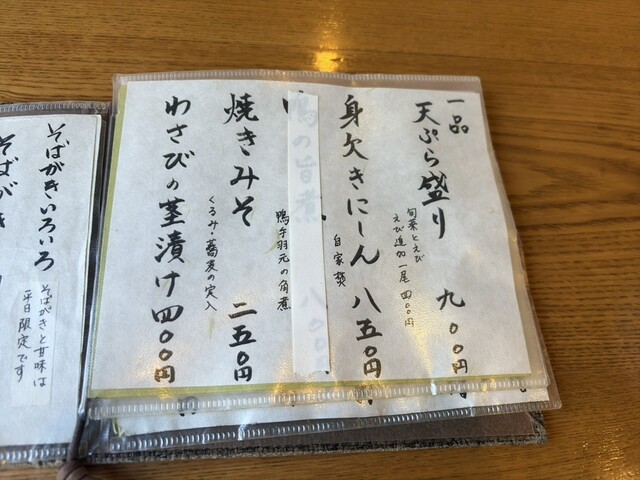 一品
天ぷら盛り 九〇〇円
旬菜とえび
えび追加一尾 四〇〇円
身欠きにしん 八五〇円
自家製
鴨の旨煮 八〇〇
鴨手羽元の角煮
焼きみそ 二五〇円
くるみ・蕎麦の実入
わさびの茎漬け 四〇〇円
そばがきいろいろ
そばがきと甘味は
平日限定です
そばがき